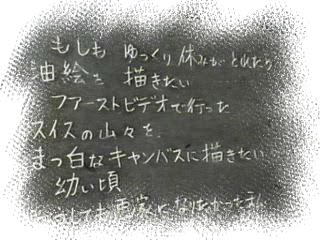 もしも ゆっくり 休みが とれたら
油絵を 描きたい
ファーストビデオで行った
スイスの山々を
まっ白なキャンバスに描きたい
幼い頃
どうしても画家になりたかった私